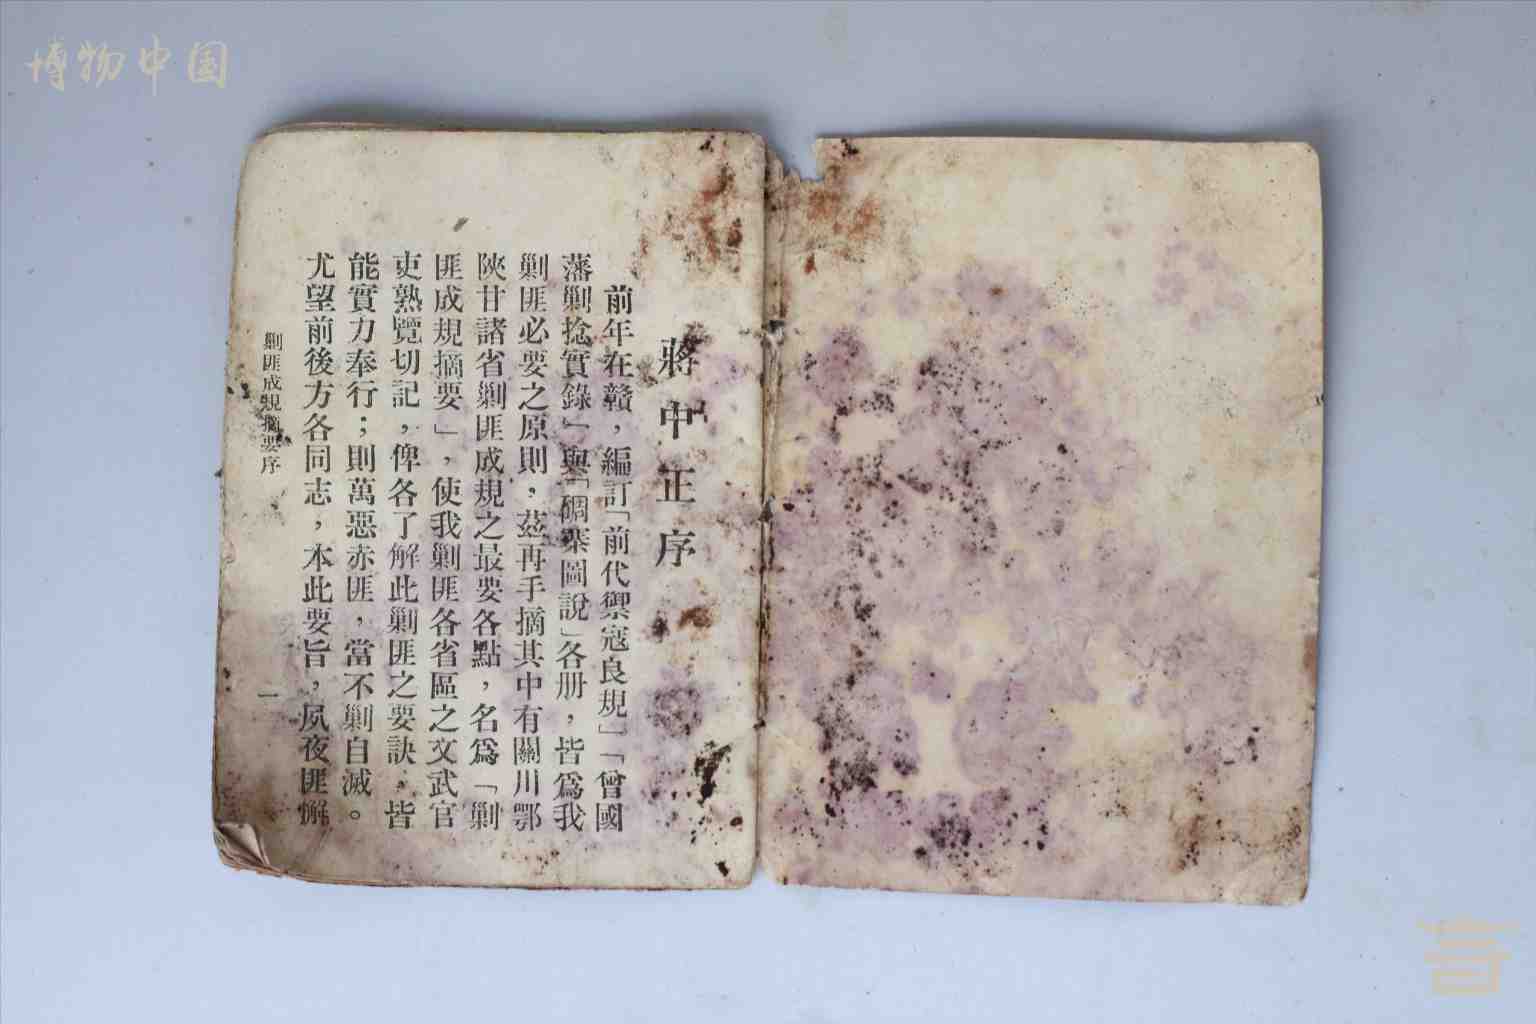 博物中国
蔣中正序
前年在贛，編訂「前代禦寇良規」「曾國
藩剿捻實錄」與「碉寨圖說」各册，皆爲我
剿匪必要之原則，茲再手摘其中有關川鄂
陝甘諸省剿匪成規之最要各點，名爲「剿
匪成規摘要」，使我剿匪各省區之文武官
吏熟覽切記，俾各了解此剿匪之要訣，皆
能實力奉行；則萬惡赤匪，當不剿自滅。
尤望前後方各同志，本此要旨，夙夜匪懈
剿匪成規摘要序
一